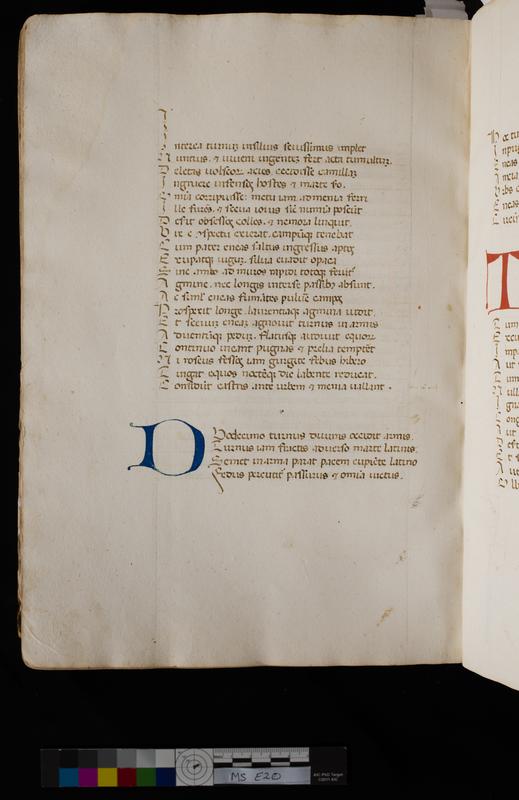 Interea turnuz insiluis seuissimus implet
Nuntius. & iuueni ingentez fert acta tumultuz.
Deletas uolscorz acies. cecidisse camillaz
Ingruere infensos hostes & marte
Omnia corripuisse: metu iam admenia ferri
Ille furens. & seua iouis sic numina poscunt
Deserit obsessos colles. & nemora linquit.
Vix e conspectu exierat. campumq tenebat
Cum pater eneas saltus ingressus aptos
Exuperatq iugum. siluaq euadit opaca
Sic ambo ad muros rapidi totoq feruntur
Agmine. nec longis interse passibus absunt.
Ac simul eneas fumantes puluere campos
Prospexit longe. laurentiaq agmina uidit.
Et seuum eneaz agnouit turnus in armis
Aduentumq pedum. flatusq audiuit equorum
Continuo ineant pugnas & prelia temptent
Ni roseus fessos iam gurgite febus hibero
Tingat equos noctemq die labente reducat.
Considunt castris ante urbem & menia uallant.
Duodecimo turnus diuinis occidit armis.
Turnus iam fractis aduerso marte latinis.
Semet in arma parat pacem cupiente latino
Fedus percutitur passurus & omnia uictus.
MS E20